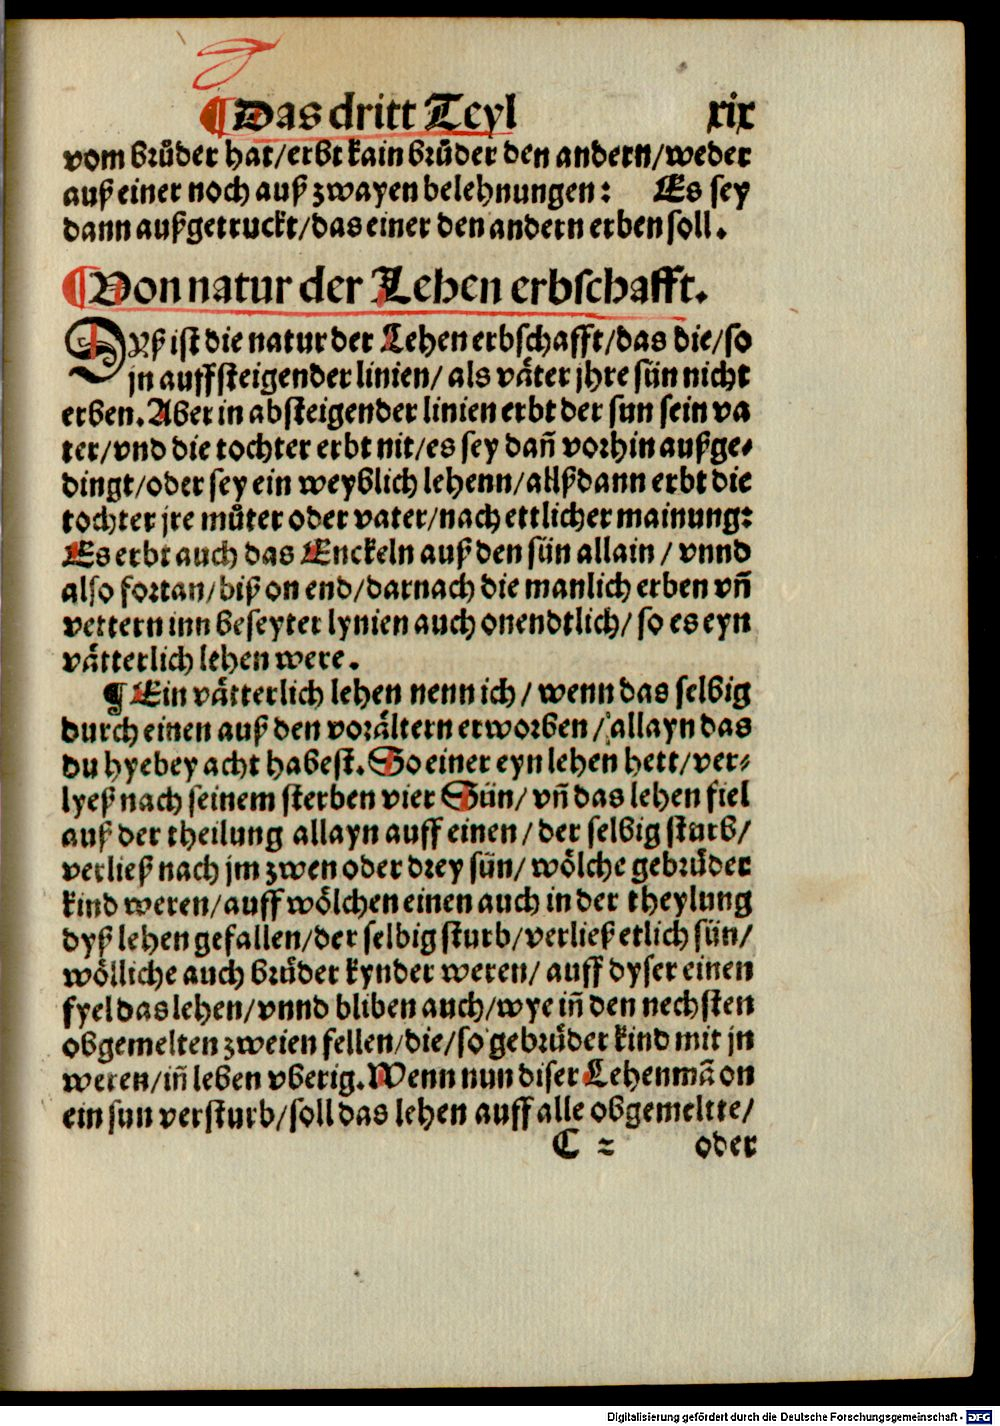 ¶Das dritt Teyl xix
vom brůder hat/erbt kain brůder den andern/weder
auß einer noch auß zwayen belehnungen: Es sey
dann außgetruckt/das einer den andern erben soll.
¶Von natur der Lehen erbschafft.
DYß ist die natur der Lehen erbschafft/das die/so
jn auffsteigender linien/ als väter jhre sün nicht
erben. Aber in absteigender linien erbt der sun sein va
ter/vnd die tochter erbt nit/es sey dañ vorhin außge⸗
dingt/oder sey ein weyblich lehenn/allßdann erbt die
tochter jre můter oder vater/nach ettlicher mainung:
Es erbt auch das Enckeln auß den sün allain / vnnd
also fortan/biß on end/darnach die manlich erben vñ
vettern inn beseyter lynien auch onendtlich/ so es eyn
vätterlich lehen were.
¶ Ein vätterlich lehen nenn ich/ wenn das selbig
durch einen auß den vorältern erworben / allayn das
du hyebey acht habest. So einer eyn lehen hett/ver⸗
lyeß nach seinem sterben vier Sün/ vñ das lehen fiel
auß der theilung allayn auff einen/ der selbig sturb/
verließ nach jm zwen oder drey sün/ wölche gebrůder
kind weren/auff wölchen einen auch in der theylung
dyß lehen gefallen/der selbig sturb/verließ etlich sün/
wölliche auch brůder kynder weren/ auff dyser einen
fyel das lehen/vnnd bliben auch/wye iñ den nechsten
obgemelten zweien fellen/die/so gebrůder kind mit jn
weren/iñ leben vberig. Wenn nun diser Lehenmã on
ein sun versturb/soll das lehen auff alle obgemeltte/
C 2 oder
Digitalisierung gefördert durch die Deutsche Forschungsgemeinschaft - DFG